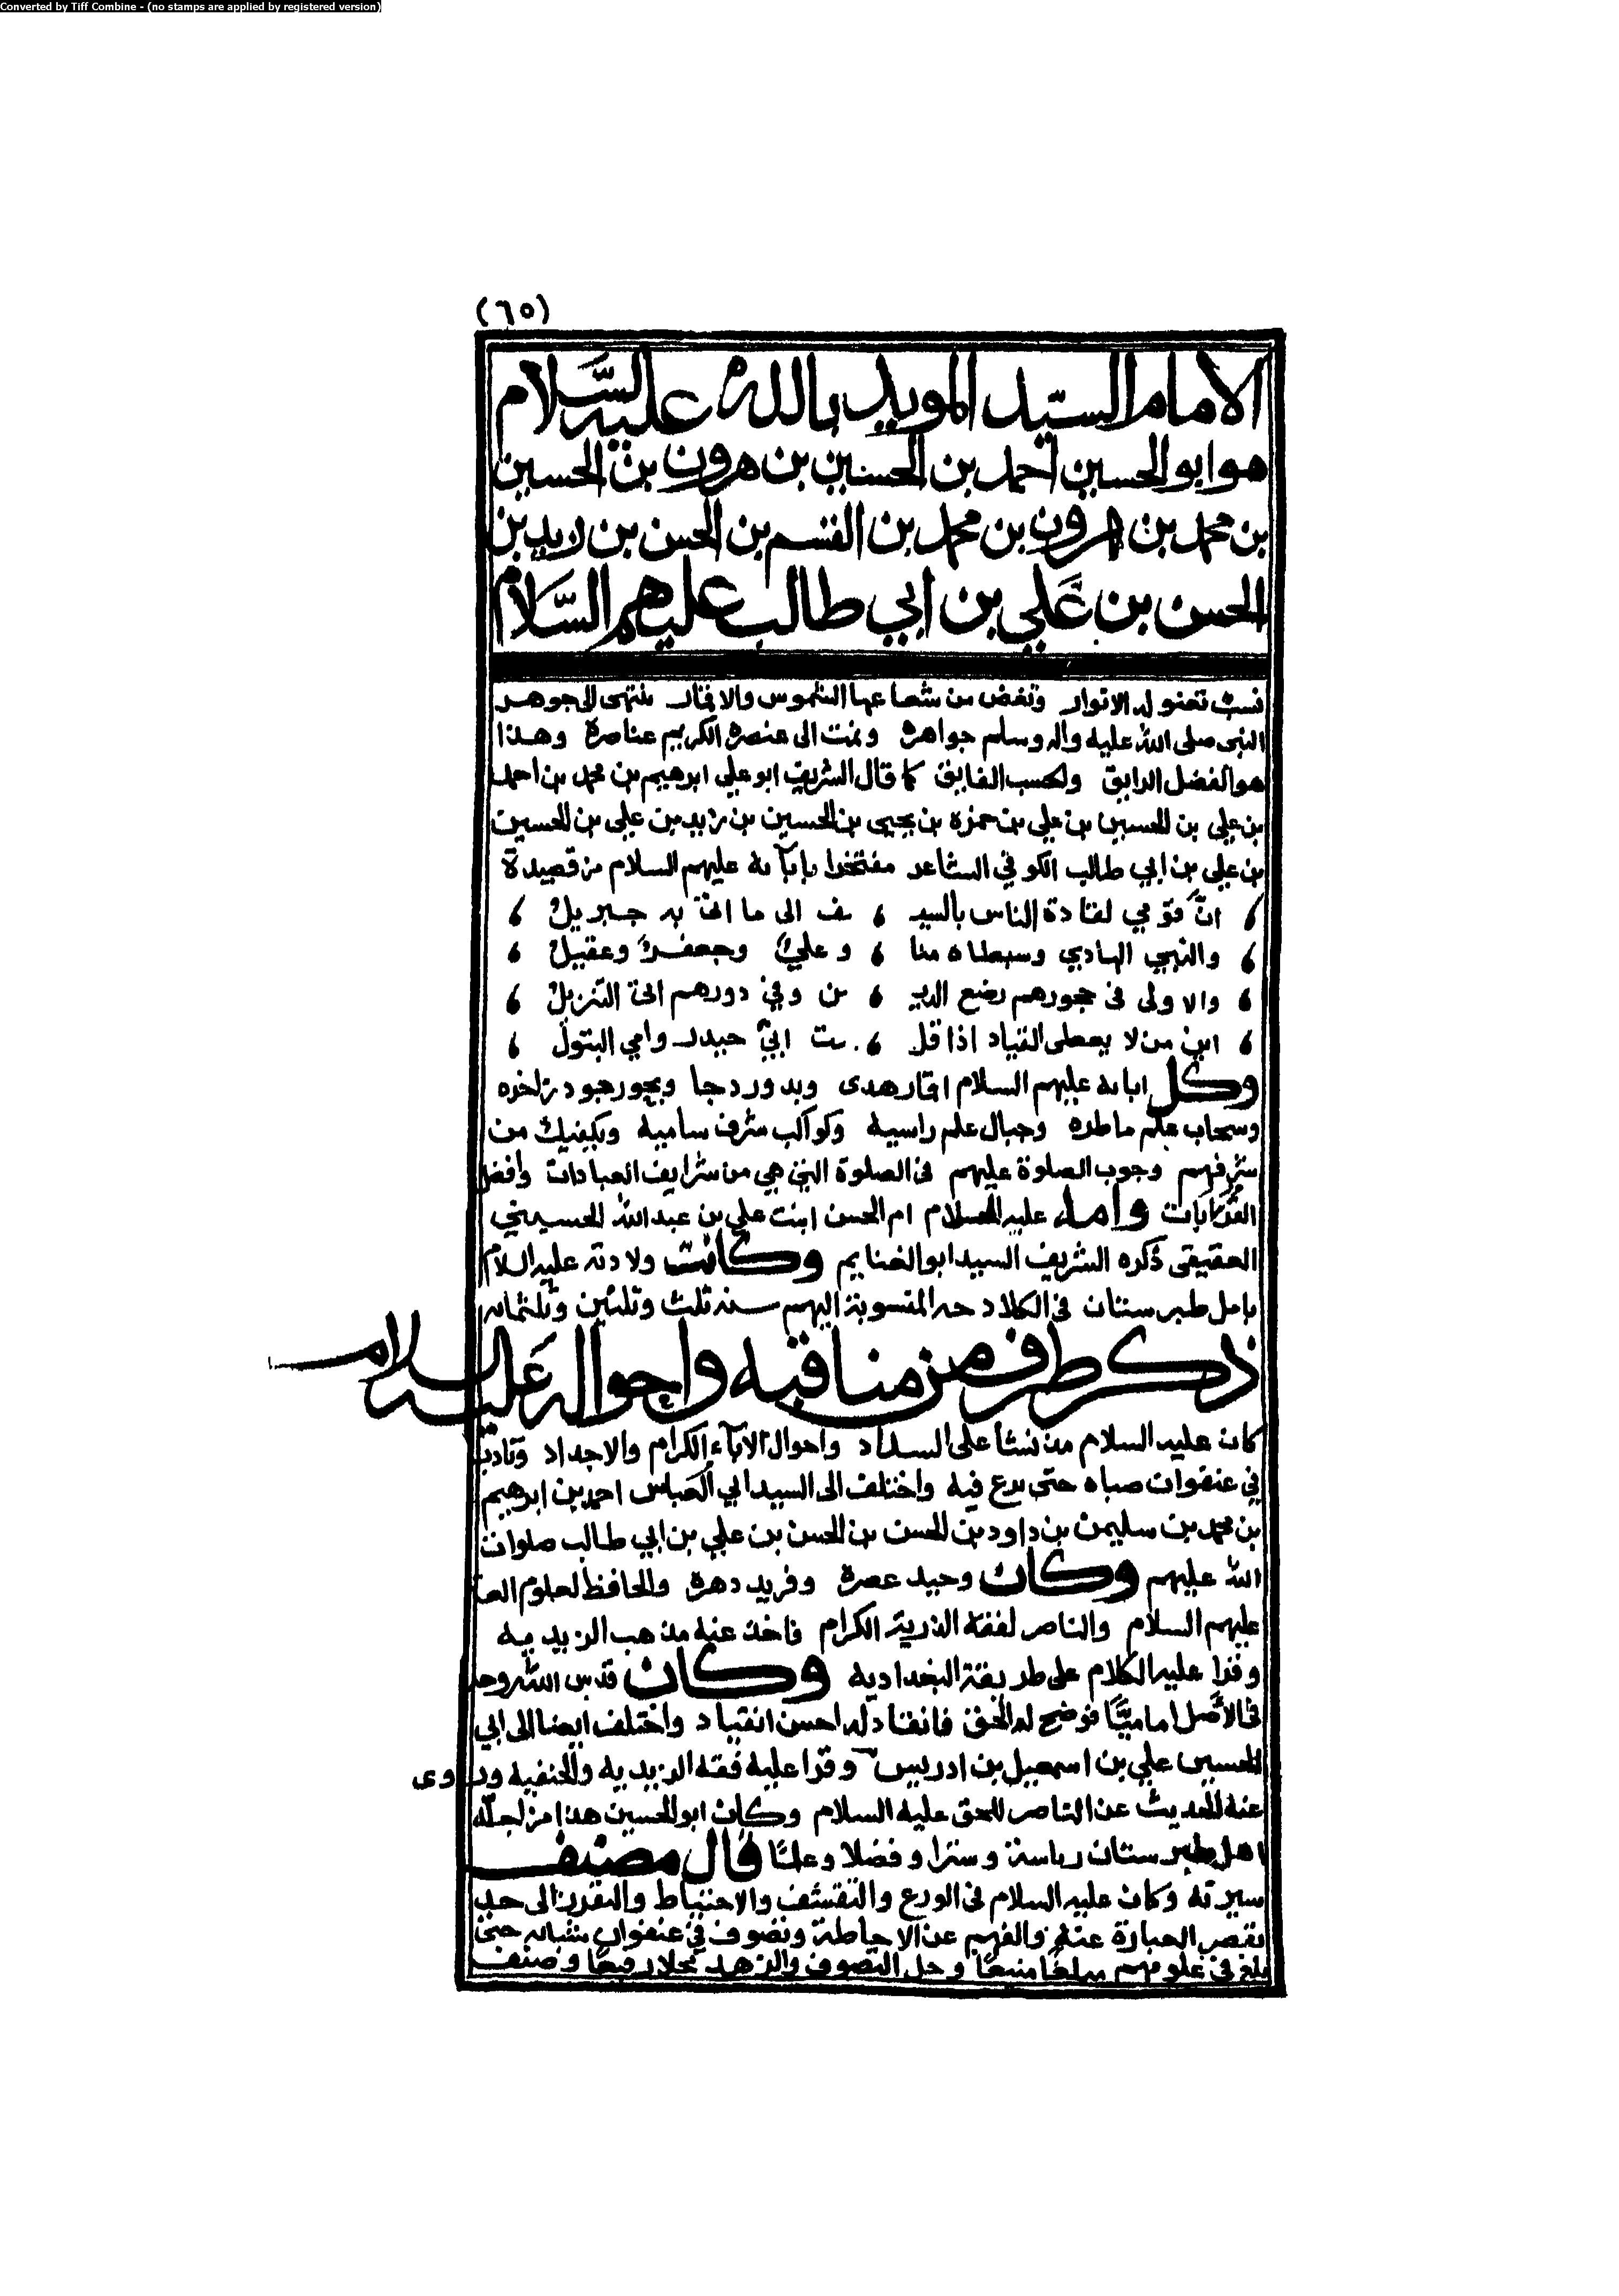 Converted by Tiff Combine - (no stamps are applied by registered version)
(٦٥)
الامام السيّد المويد بالله عليه السّلام
هو ابو الحسين احمد بن الحسين بن هرون بن الحسين
بن محمد بن هرون بن محمد بن القسم بن الحسن بن زيد بن
الحسن بن عَلي بن ابي طالب عليهم السّلام
نسب تعنو له الانوار وتغض من شعاعها الشموس والاقمار ينتهى الى جوهر
النبى صلى الله عليه واله وسلم جواهره ونمت الى عنصره الكريم عناصرة وهذا
هو الفضل الرايق والحسب الفايق كما قال الشريف ابو علي ابرهيم بن محمد بن احمد
بن علي بن الحسين بن علي بن حمزه بن يحيى بن الحسين بن زيد بن علي بن الحسين
بن علي بن ابي طالب الكوفي الشاعر مفتخرا بابآيه عليهم السلام من قصيدة
انّ قومي لقادة الناس بالسيـ ـف الى ما اتى به جبريل
والنبي الهادي وسبطاه منا وعليٌ وجعفرٌ وعقيل
والاولى فى حجورهم رضع الديـ ـن وفي دورهم اتى التنزيل
ابن من لا يعطى القياد اذا قلـ ـت ابي حيدر وامي البتول
وكل ابايه عليهم السلام اقمار هدى وبدور دجا وبحور جود زاخره
وسحاب علم ماطره وجبال علم راسية وكواكب شرف سامية ويكفيك من
شرفهم وجوب الصلوة عليهم فى الصلوة التي هي من شرايف العبادات وافضل
القربات وامه عليه السلام ام الحسن ابنت علي بن عبد الله الحسيني
العقيقى ذكره الشريف السيد ابو الغنايم وكانت ولادته عليه السلام
بامل طبرستان فى الكلاد حه المنسوبة اليهم سنه ثلث وثلثين وثلثمايه
ذكر طرف من مناقبه واحواله عليه السلام
كان عليه السلام من نشا على السداد واحوال الابآء الكرام والاجداد وتادب
في عنفوان صباه حتى برع فيه واختلف الى السيد ابي العباس احمد بن ابرهيم
بن محمد بن سليمن بن داود بن الحسن بن الحسن بن علي بن ابي طالب صلوات
الله عليهم وكان وحيد عصره وفريد دهرة والحافظ لعلوم
عليهم السلام والناصر لفقه الذرية الكرام فاخذ عنه مذهب الزيديه
وقرا عليه الكلام على طريقة البغداديه وكان قدس الله روحه
فى الأصل اماميًّا فوضح له الحق فانقاد له احسن انقياد واختلف ايضا الى ابي
الحسين علي بن اسمعيل بن ادريس وقرا عليه فقه الزيديه والحنفيه وروى
عنه الحديث عن الناصر للحق عليه السلام وكان ابو الحسين هذا من اجله
اهل طبرستان رياسة وسترا وفضلا وعلمًا قال مصنف
سيرته وكان عليه السلام فى الورع والتقشف والاحتياط والتقزز الى حد
تقصر العبارة عنه والفهم عن الاحاطة وتصوف في عنفوان شبابه حتى
بلغ فى علومهم مبلغا منيعًا وحل التصوف والزهد محلا رفيعًا وصنف